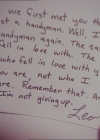 we first met you th
st a handyman. Well, I
handyman again. The sa
ell in love with. The
who fell in love with y
ou are, not who I
are. Remember that A
I'm not giving up.
Leo